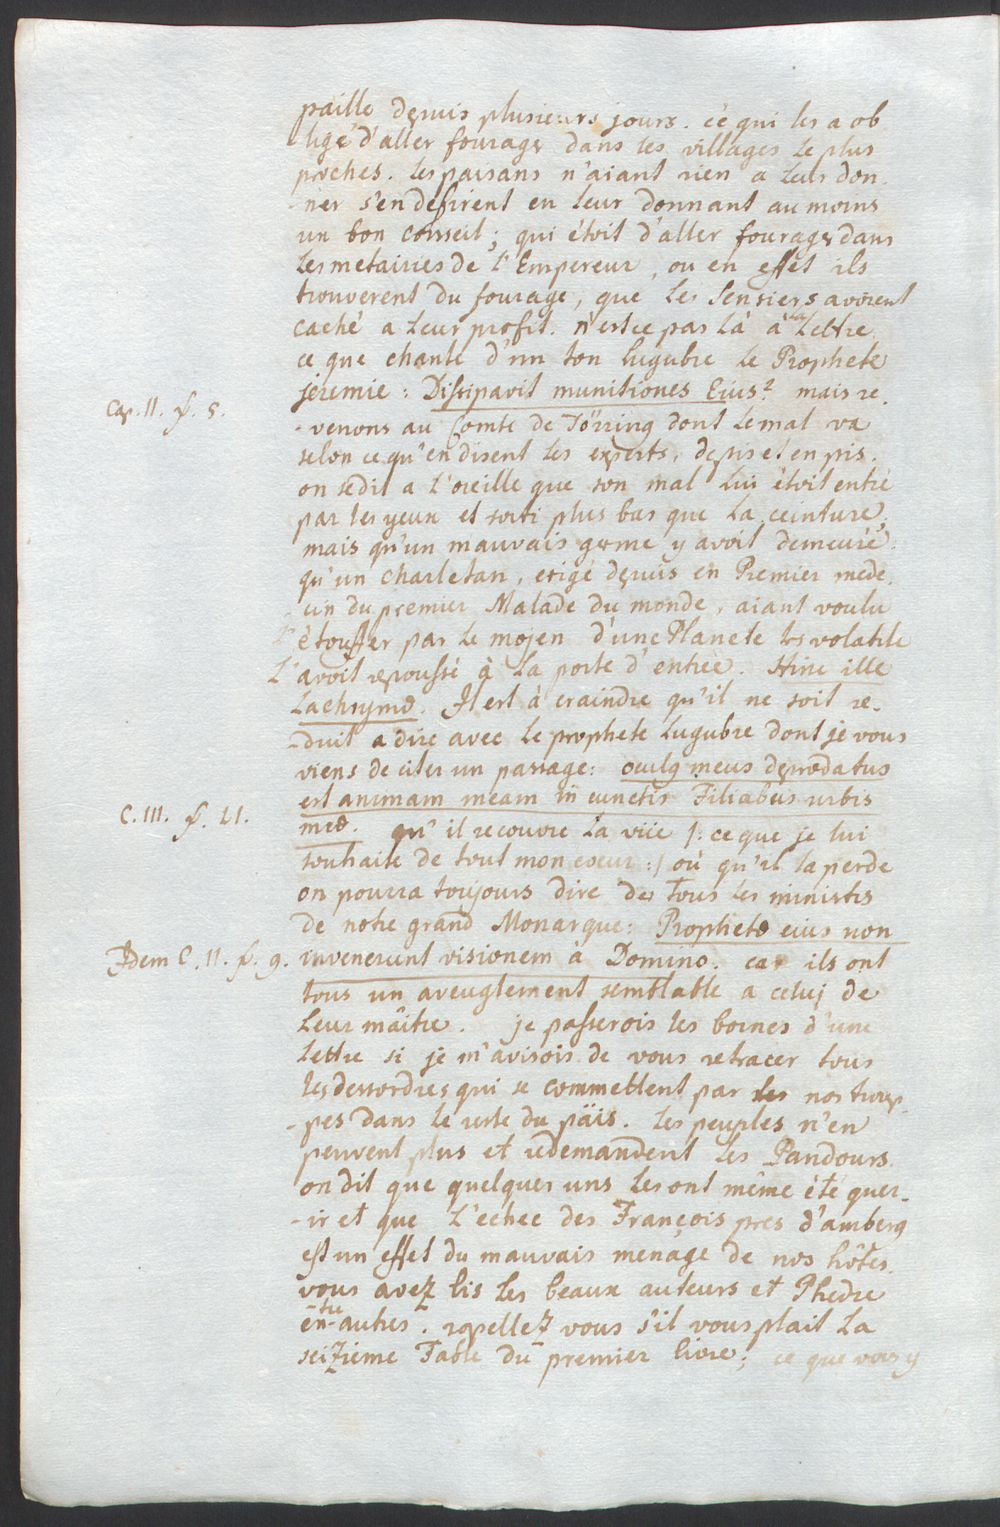 paille depuis plusieurs jours. ce qui les a ob
-ligé d'aller fourager dans les villages le plus
proches. les paisans n'aiant rien a leur don
-ner s'en defirent en leur donnant au moins
un bon conseil; qui étoit d'aller fourager dans
les metairies de l'Empereur, ou en effet ils
trouverent du fourage, que les Censiers avoient
caché a leur profit. n'est ce pas là à la Lettre
ce que chante d'un ton lugubre le Prophete
jeremie: Dissipavit munitiones Eius? mais re-
Cap. II. ℣. 5.
-venons au Comte de Törring dont le mal va
selon ce qu'en disent les experts, de pis en pis.
on se dit a l'oreille que son mal lui étoit entré
par les yeux et sorti plus bas que la ceinture;
mais qu'un mauvais germe y avoit demeuré.
qu'un charletan, erigé depuis en Premier mede
-cin du premier Malade du monde, aiant voulu
l'étouffer par le mojen d'une Planete tres volatile
l'avoit repoussé à la porte d'entrée. Hinc ille
Lachrymæ. Il est à craindre qu'il ne soit re-
-duit a dire avec le prophete lugubre dont je vous
viens de citer un passage: oculg meus deprædatus
est animam meam in cunctis Filiabus urbis
C. III. ℣. 51.
meæ. qu'il recouvre la vüe /: ce que je lui
souhaite de tout mon coeur :/ où qu'il la perde
on pourra toujours dire de tous les ministres
de notre grand Monarque: Prophetæ eius non
Idem C. II. ℣. 9.
invenerunt visionem a Domino. car ils ont
tous un aveuglement semblable a celuj de
Leur maître. je passerois les bornes d'une
Lettre si je m'avisois de vous retracer tous
les dessordres qui se commettent par les nos troup-
-pes dans le reste du païs. les peuples n'en
peuvent plus et redemandent les Pandours
on dit que quelques uns les ont même été quer-
-ir et que l'echec des François pres d'amberg
est un effet du mauvais menage de nos hôtes.
vous avez lis les beaux auteurs et Phedre
entre-autres. rapellez vous s'il vous plait la
seizieme Fable du premier livre; ce que vous y